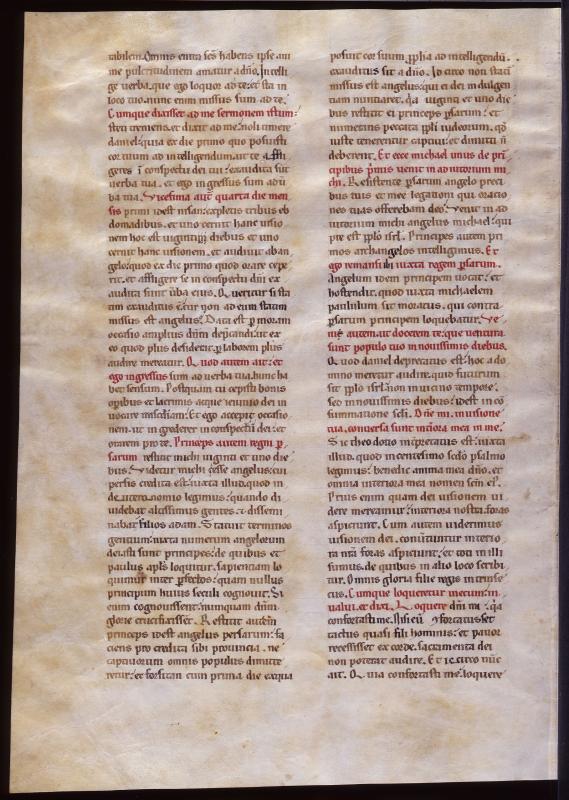 tabilem. Omnis enim scs habens ipse ani
me pulcritudinem amatur a dño. Intelli
ge verba que ego loquor ad te: et sta in
loco tuo. nunc enim missus sum ad te.
Cumque dixisset ad me sermonem istum:
steti tremens. et dixit ad me. noli timere
daniel. quia ex die primo quo posuisti
cor tuum ad intelligendum. ut te affli
geres i conspectu dei tui: exaudita sūt
verba tua. et ego ingressus sum ad ū
ba tua. Vicesima aut quarta die men
sis primi idest nisan. expletis tribus eb
domadibus. et uno cernit hanc visio
nem hoc est viginti diebus et uno
cernit hanc visionem. et audivit ab an
gelo: quod ex die primo quod orare cepe
rit. et affligere se in conspectu dni ex
audita sunt ūba eius. Queritur si sta
tim exauditus est. cur non ad eum statim
missus est angelus. Data est p moram
occasio amplius dnm depcandi. ut ex
eo quod plus desiderat. p laborem plus
audire mereatur. Quod autem ait: et
ego ingressus sum ad verba tua. hunc ha
bet sensum. Postquam tu cepisti bonis
opibus et lacrimis atque ieiunio dei in
vocare mscdiam: Et ego accepi occasio
nem. ut in grederer in conspectu dei: et
orarem pro te. Princeps autem regni p
sarum restitit michi viginti et uno die
bus. Videtur michi esse angelus: cui
persis credita est. iuxta illud. quod in
deuteronomio legimus: quando di
videbat altissimus gentes. et dissemi
nabat filios adam. Statuit terminos
gentium: iuxta numerum angelorum
dei. isti sunt principes: de quibus et
paulus apls loquitur. sapientiam lo
quimur inter pfectos: quam nullus
principum huius seculi cognovit. Si
enim cognovissent: nunquam dnm
glorie crucifixisset. Restitit autem
princeps idest angelus persarum: fa
ciens pro credita sibi provincia. ne
captivorum omnis populus dimitte
retur: et forsitan cum prima die ex qua
posuit cor suum ppha ad intelligendū.
exauditus sit a dño. Idcirco non stati
missus est angelus: qui ei dei indulgen
tiam nuntiaret. qa viginti et uno die
bus restitit ei princeps psarum: et
numerans peccata ppli iudeorum. qd
iuste tenerentur captivi: et dimitti ñ
deberent. Et ecce michael unus de pri
cipibus pmis venit in adiutorium mi
chi. Resistente psarum angelo preci
bus tuis et mee legationi qui oratio
nes tuas offerebam deo. Venit in ad
iutorium michi angelus michael: qui
pte est pplo isrl. Principes autem pri
mos archangelos intelligimus. Et
ego remansi ibi iuxta regem psarum.
Angelum idem principem vocat: et
hostendit. quod iuxta michaelem
paululum sit moratus. qui contra
psarum principem loquebatur. Ve
ni autem ut docerem te. que ventura
sunt populo tuo in novissimis diebus.
Quod daniel deprecatus est: hoc a do
mino meretur audire. quid futurum
sit pplo isrl. non in vicino tempore.
sed in novissimis diebus: idest in co
summatione scli. Dne mi. in visione
tua. conversa sunt intiora mea in me.
Sic theodotio intpretatus est: iuxta
illud. quod in centesimo scdo psalmo
legimus: benedic anima mea dño. et
omnia interiora mea nomen scm ei.
Prius enim quam dei visionem vi
dere mereamur: interiora nostra foras
aspiciunt. Cum autem viderimus
visionem dei. convertuntur interio
ra nra foras aspiciunt: et toti in illi
sumus. de quibus in alio loco scribi
tur. Omnis gloria filie regis intrinse
cus. Cumque loqueretur mecum: in
valui. et dixi. Loquere dni mi: qa
confortasti me. Nisi cū confortasset
tactus quasi filii hominis: et pavor
recessisset ex corde. sacramenta dei
non poterat audire. Et icirco nūc
ait. Quia confortasti me: loquere